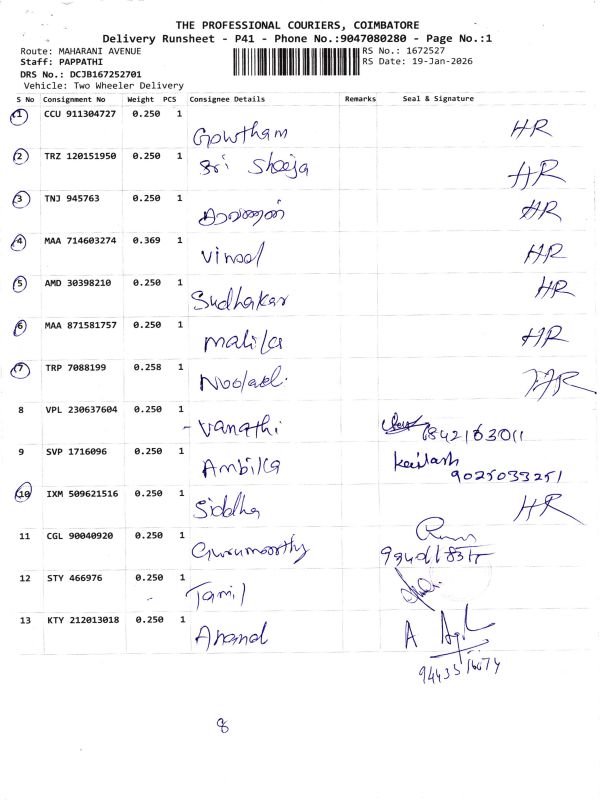 THE PROFESSIONAL COURIERS, COIMBATORE
Delivery Runsheet - P41 - Phone No.:9047080280 - Page No.:1
Route: MAHARANI AVENUE RS No.: 1672527
Staff: PAPPATHI RS Date: 19-Jan-2026
DRS No.: DCJB167252701
Vehicle: Two Wheeler Delivery
S No Consignment No Weight PCS Consignee Details Remarks Seal & Signature
1 CCU 911304727 0.250 1 Gowtham HR
2 TRZ 120151950 0.250 1 Sri Sheeja HR
3 TNJ 945763 0.250 1 HR
4 MAA 714603274 0.369 1 HR
5 AMD 30398210 0.250 1 Sudhakar HR
6 MAA 871581757 0.250 1 Malika HR
7 TRP 7088199 0.258 1 HR
8 VPL 230637604 0.250 1 - Vanathi
9 SVP 1716096 0.250 1 Ambika Kailash
9025033251
10 IXM 509621516 0.250 1 Siddha HR
11 CGL 90040920 0.250 1 Gurumoorthy
12 STY 466976 0.250 1 Tamil
13 KTY 212013018 0.250 1 Anand A
8